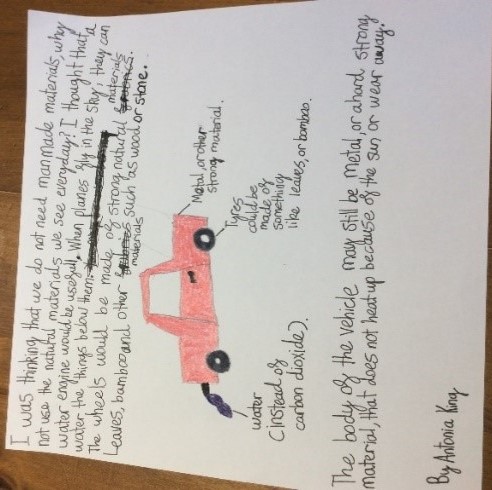 I was thinking that we do not need manmade materials, why
not use the natural materials we see everyday? I thought that a
water engine would be useful. When planes fly in the sky, they can
water the things below them.
The wheels would be made of strong natural materials
Leaves, bamboo and other materials such as wood or stone.
Metal, or other
strong material.
Tyres
could be
made of
something
like leaves, or bamboo.
Water
(instead of
carbon dioxide).
The body of the vehicle may still be metal, or a hard strong
material, that does not heat up because of the sun or wear away.
By Antonia King